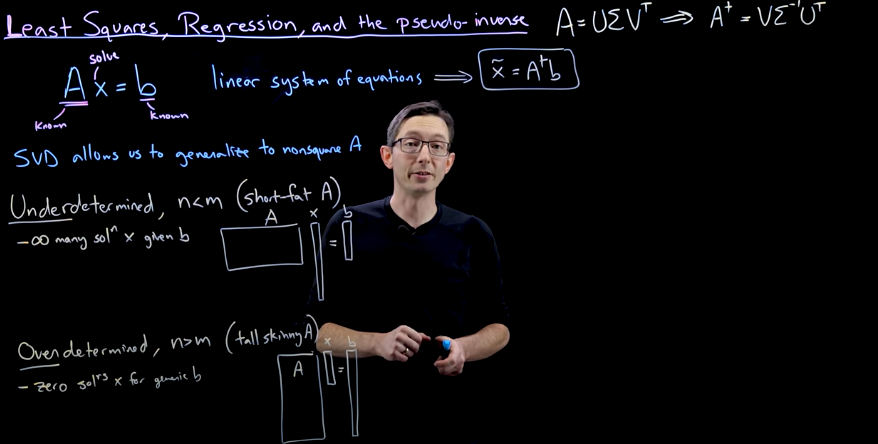 Least Squares, Regression, and the pseudo-inverse
A = UΣVᵀ ⟹ A⁺ = VΣ⁻¹Uᵀ
solve
A x = b
known
known
linear system of equations ⟹ x̃ = A⁺b
SVD allows us to generalize to nonsquare A
Underdetermined, n<m (short-fat A)
A x = b
-∞ many solⁿ x given b
Overdetermined, n>m (tall skinny A)
A x = b
- zero solⁿˢ x for generic b